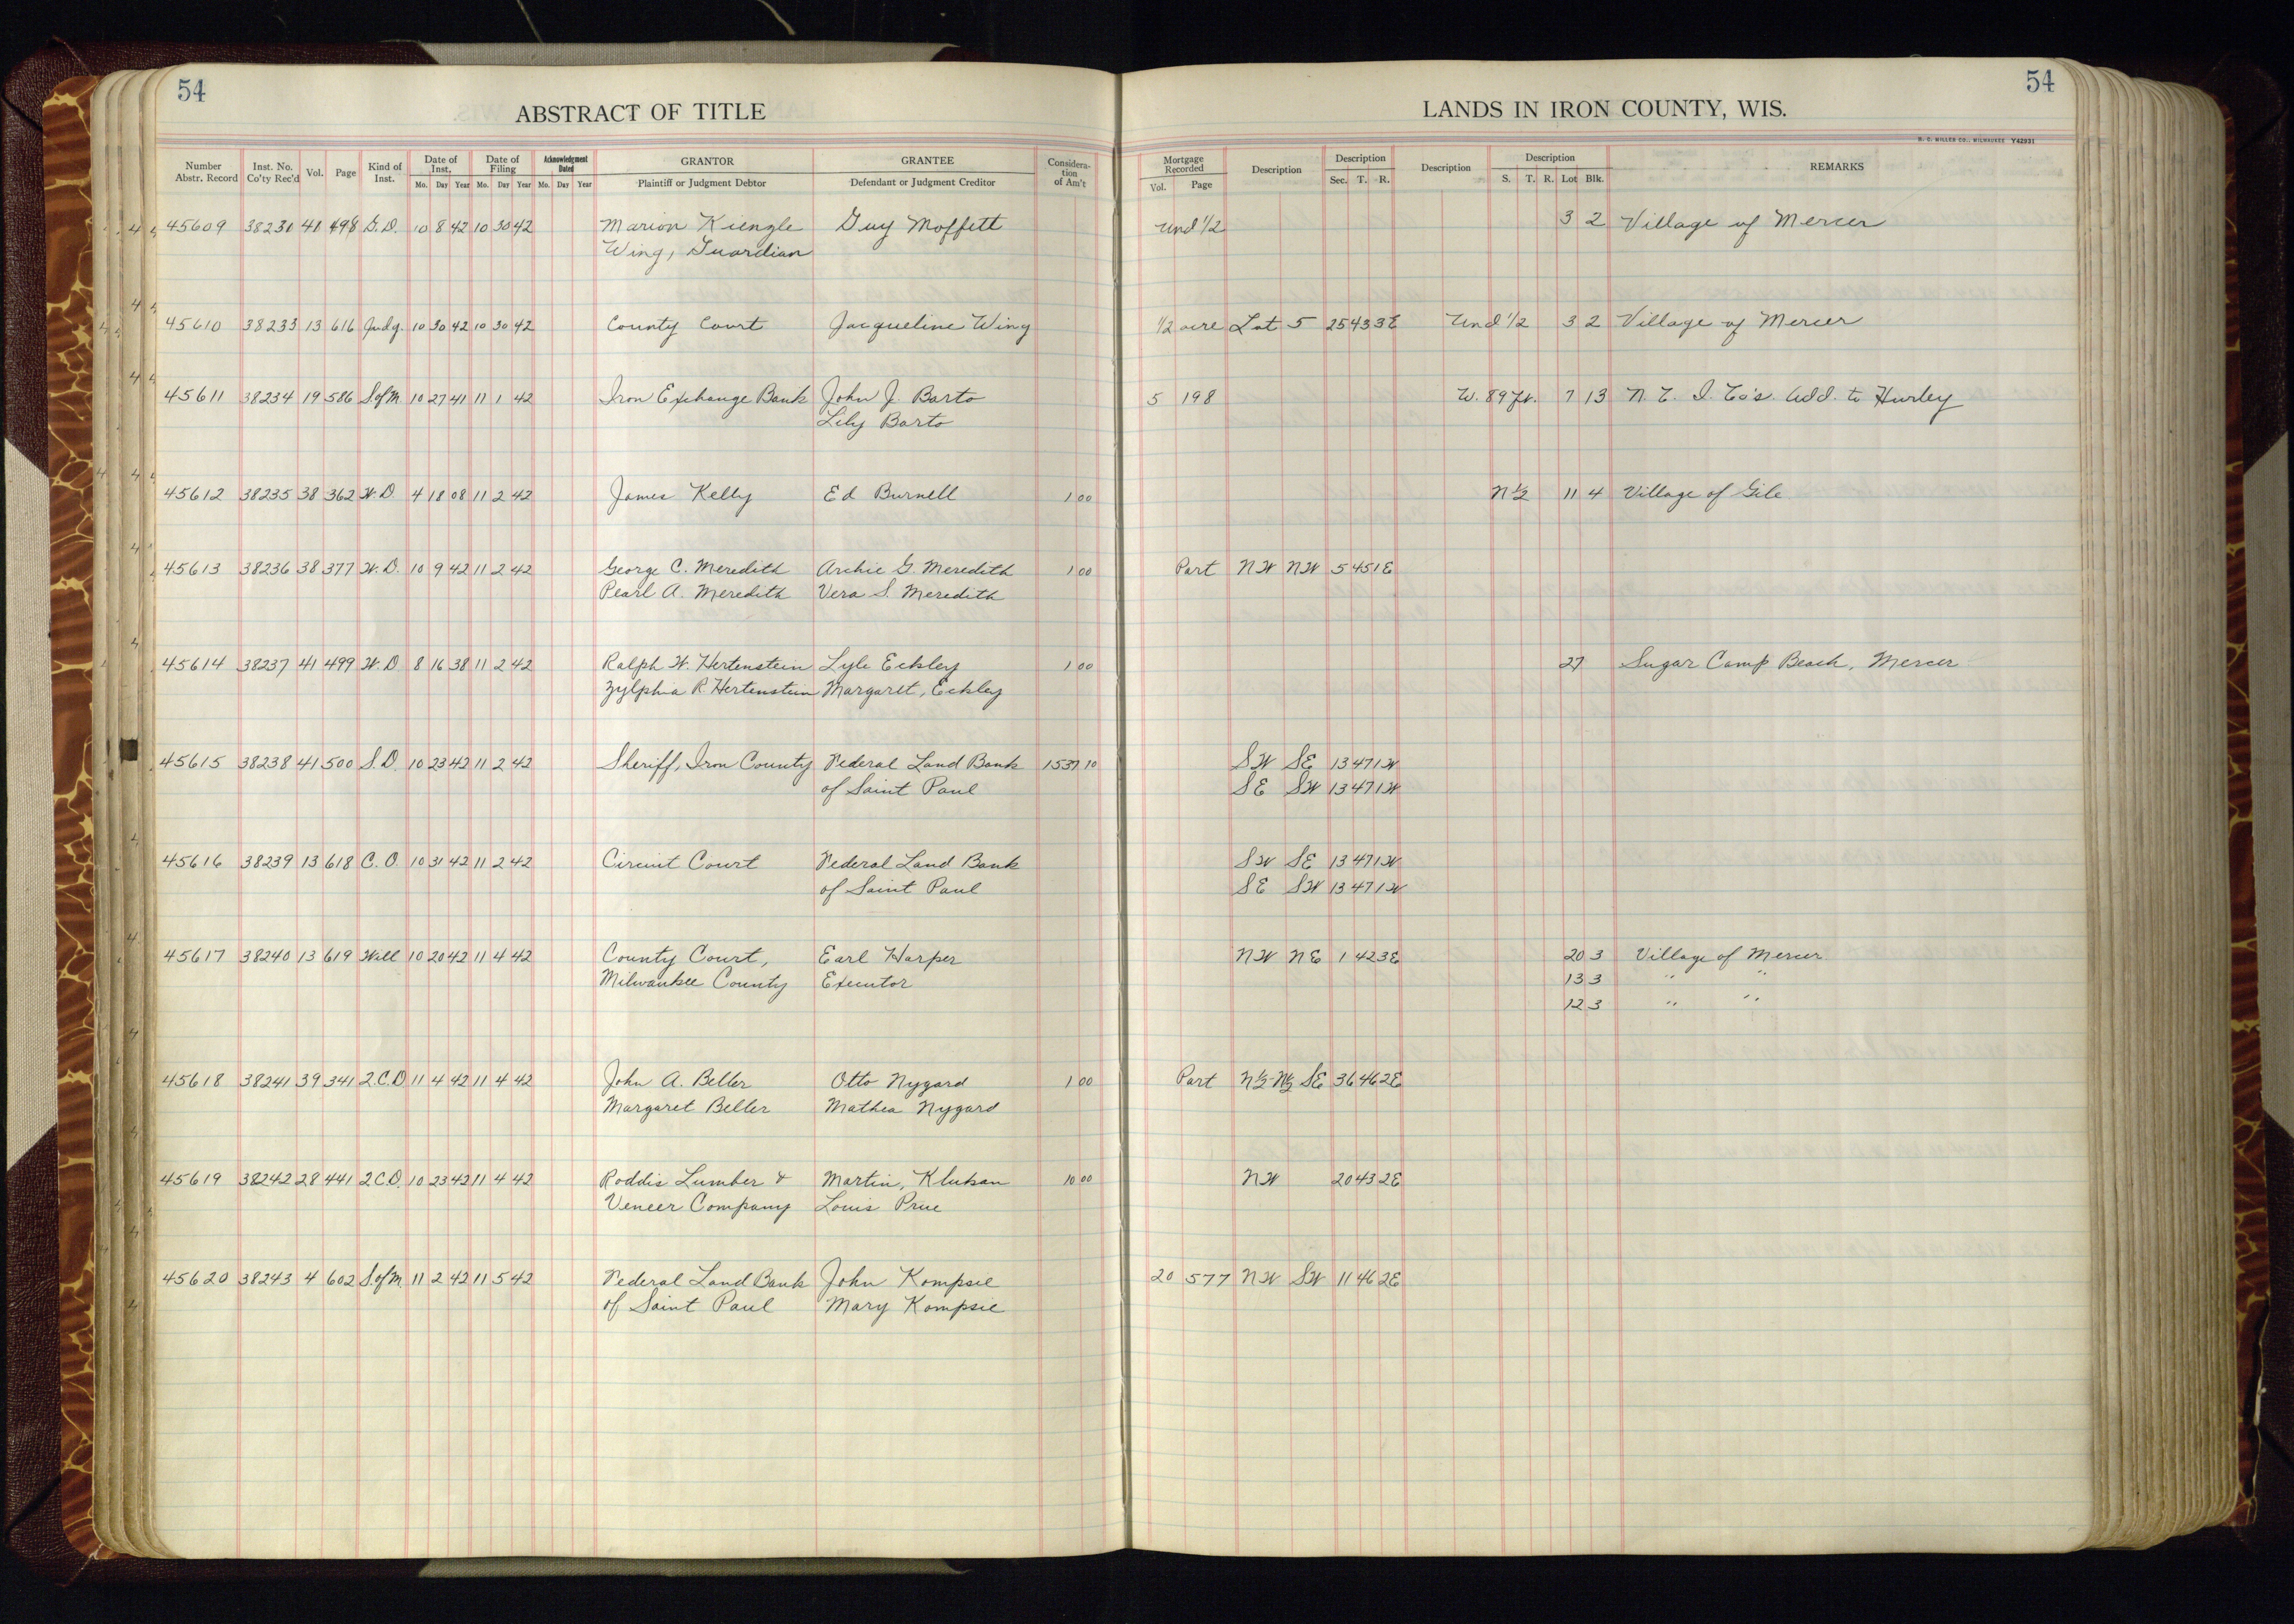 54
54
ABSTRACT OF TITLE
LANDS IN IRON COUNTY, WIS.
H. C. MILLER CO., MILWAUKEE Y42931
Number Abstr. Record Inst. No. Co'ty Rec'd Vol. Page Kind of Inst. Date of Inst. Mo. Day Year Date of Filing Mo. Day Year Acknowledgment Dated Mo. Day Year GRANTOR Plaintiff or Judgment Debtor GRANTEE Defendant or Judgment Creditor Consideration of Am't Mortgage Recorded Vol. Page Description Description Sec. T. R. Description Description S. T. R. Lot Blk. REMARKS
45609 38230 41 498 G.D. 10 8 42 10 30 42 Marion Kienzle Guy Moffett Und 1/2 3 2 Village of Mercer
Wing, Guardian
45610 38233 13 616 Judg. 10 30 42 10 30 42 County Court Jacqueline Wing 1/2 acre Lot 5 25 43 3E Und 1/2 3 2 Village of Mercer
45611 38234 19 586 S of M 10 27 41 11 1 42 Iron Exchange Bank John J. Barto 5 198 W. 89 ft. 7 13 N. L. I. Co's. Add. to Hurley
Lily Barto
45612 38235 38 362 W.D. 4 18 08 11 2 42 James Kelly Ed Burnell 1 00 N 1/2 11 4 Village of Gile
45613 38236 38 377 W.D. 10 9 42 11 2 42 George C. Meredith Archie G. Meredith 1 00 Part NW NW 5 45 1E
Pearl A. Meredith Vera S. Meredith
45614 38237 41 499 W.D 8 16 38 11 2 42 Ralph W. Hertenstein Lyle Eckley 1 00 27 Sugar Camp Beach, Mercer
Zylphia R. Hertenstein Margaret, Eckley
45615 38238 41 500 S.D. 10 23 42 11 2 42 Sheriff, Iron County Federal Land Bank 1537 10 SW SE 13 47 1W
of Saint Paul SE SW 13 47 1W
45616 38239 13 618 C. O. 10 31 42 11 2 42 Circuit Court Federal Land Bank SW SE 13 47 1W
of Saint Paul SE SW 13 47 1W
45617 38240 13 619 Will 10 20 42 11 4 42 County Court, Earl Harper NW NE 1 42 3E 20 3 Village of Mercer
Milwaukee County Executor 13 3 " "
12 3 " "
45618 38241 39 341 2.C.D 11 4 42 11 4 42 John A. Beller Otto Nygard 1 00 Part N1/2-N1/2 SE 36 46 2E
Margaret Beller Mathea Nygard
45619 38242 28 441 2.C.D. 10 23 42 11 4 42 Roddis Lumber & Martin, Kluksan 10 00 NW 20 43 2E
Veneer Company Louis Prue
45620 38243 4 602 S.of M. 11 2 42 11 5 42 Federal Land Bank John Kompsie 20 577 NW SW 11 46 2E
of Saint Paul Mary Kompsie